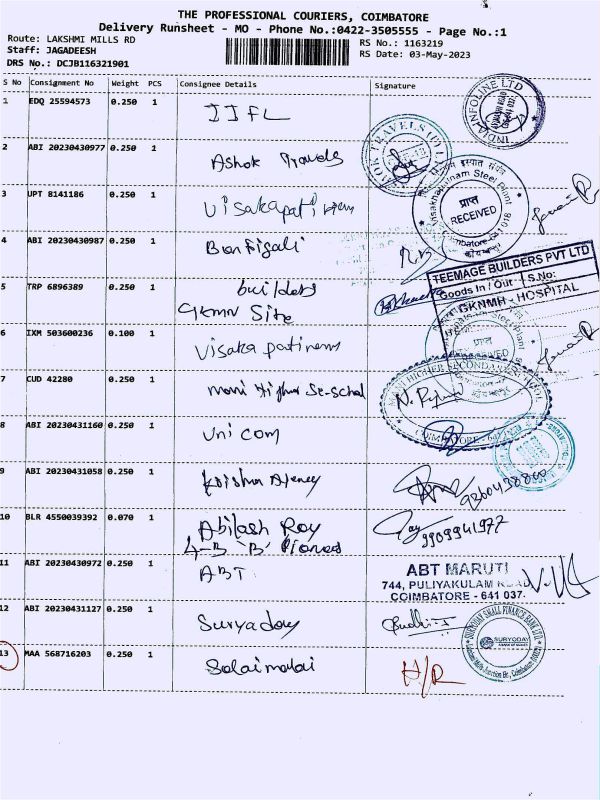 THE PROFESSIONAL COURIERS, COIMBATORE
Delivery Runsheet - MO - Phone No.:0422-3505555 - Page No.:1
Route: LAKSHMI MILLS RD
RS No.: 1163219
Staff: JAGADEESH
RS Date: 03-May-2023
DRS No.: DCJB116321901
S No Consignment No Weight PCS Consignee Details Signature
1 EDQ 25594573 0.250 1 IIFL
INDIA INFOLINE LTD
2 ABI 20230430977 0.250 1 Ashok Travels
3 UPT 8141186 0.250 1 Visakapatinam
Visakhapatnam Steel Plant
प्राप्त
RECEIVED
4 ABI 20230430987 0.250 1 Bonfigali
5 TRP 6896389 0.250 1 builders
GKMN Site
TEEMAGE BUILDERS PVT LTD
Goods In / Out S.No:
GKNMH - HOSPITAL
6 IXM 503600236 0.100 1 Visaka patinam
प्राप्त
7 CUD 42280 0.250 1 mani Higher Se-school
HIGHER SECONDARY
COIMBATORE
8 ABI 20230431160 0.250 1 Unicom
9 ABI 20230431058 0.250 1 Krishna Agency
9360438860
10 BLR 4550039392 0.070 1 Abilash Roy
4-B 'B'
9909941977
11 ABI 20230430972 0.250 1 ABT
ABT MARUTI
744, PULIYAKULAM ROAD
COIMBATORE - 641 037.
12 ABI 20230431127 0.250 1 Suryoday
SURYODAY SMALL FINANCE BANK LTD.
SURYODAY
13 MAA 568716203 0.250 1 Salaimalai
H/R